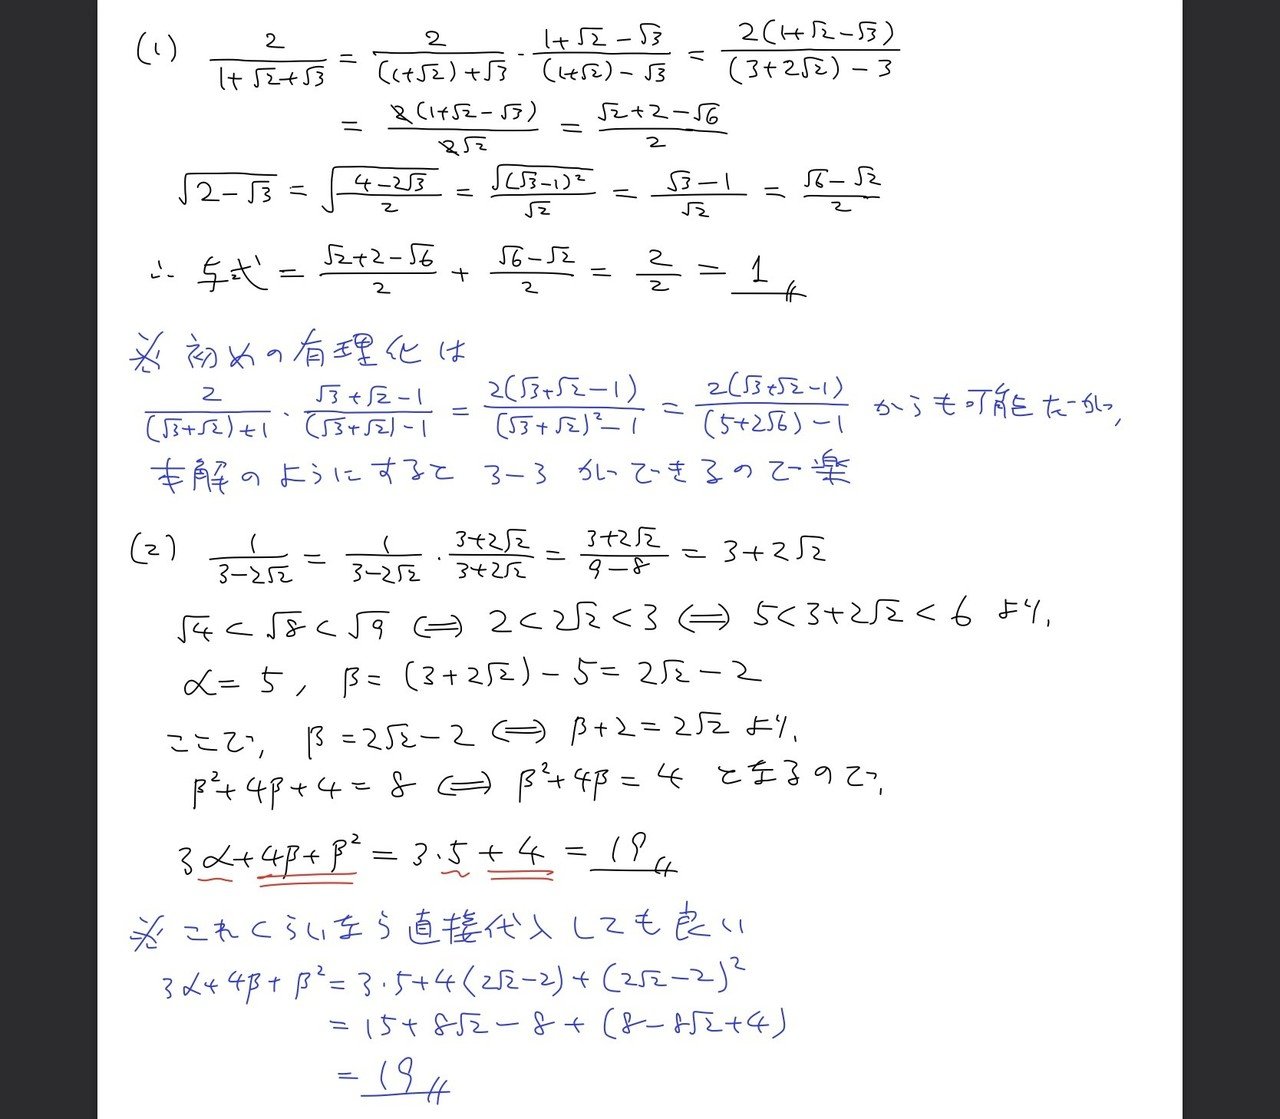 (1) 2/(1+√2+√3) = 2/((1+√2)+√3) · (1+√2-√3)/((1+√2)-√3) = 2(1+√2-√3)/((3+2√2)-3)
= 2(1+√2-√3)/(2√2) = (√2+2-√6)/2
√(2-√3) = √((4-2√3)/2) = √((√3-1)²)/√2 = (√3-1)/√2 = (√6-√2)/2
∴ 与式 = (√2+2-√6)/2 + (√6-√2)/2 = 2/2 = 1
※ 初めの有理化は
2/((√3+√2)+1) · (√3+√2-1)/((√3+√2)-1) = 2(√3+√2-1)/((√3+√2)²-1) = 2(√3+√2-1)/((5+2√6)-1) からも可能だが,
本解のようにすると 3-3 ができるので楽
(2) 1/(3-2√2) = 1/(3-2√2) · (3+2√2)/(3+2√2) = (3+2√2)/(9-8) = 3+2√2
√4 < √8 < √9 ⟺ 2 < 2√2 < 3 ⟺ 5 < 3+2√2 < 6 より,
α = 5, β = (3+2√2) - 5 = 2√2 - 2
ここで, β = 2√2 - 2 ⟺ β+2 = 2√2 より,
β²+4β+4 = 8 ⟺ β²+4β = 4 となるので,
3α+4β+β² = 3·5+4 = 19
※ これくらいなら直接代入しても良い
3α+4β+β² = 3·5+4(2√2-2)+(2√2-2)²
= 15+8√2-8+(8-8√2+4)
= 19